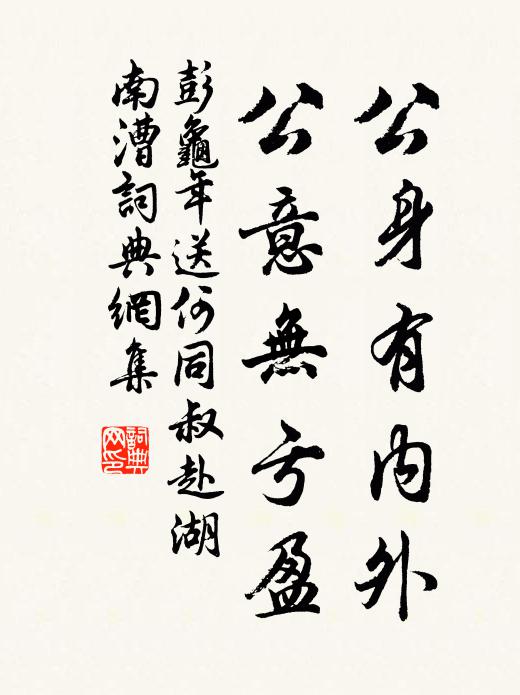 公身有内外
公意無亏盈
彭龜年送何同叔赴湖
南漕詞典網集
詞典
网印